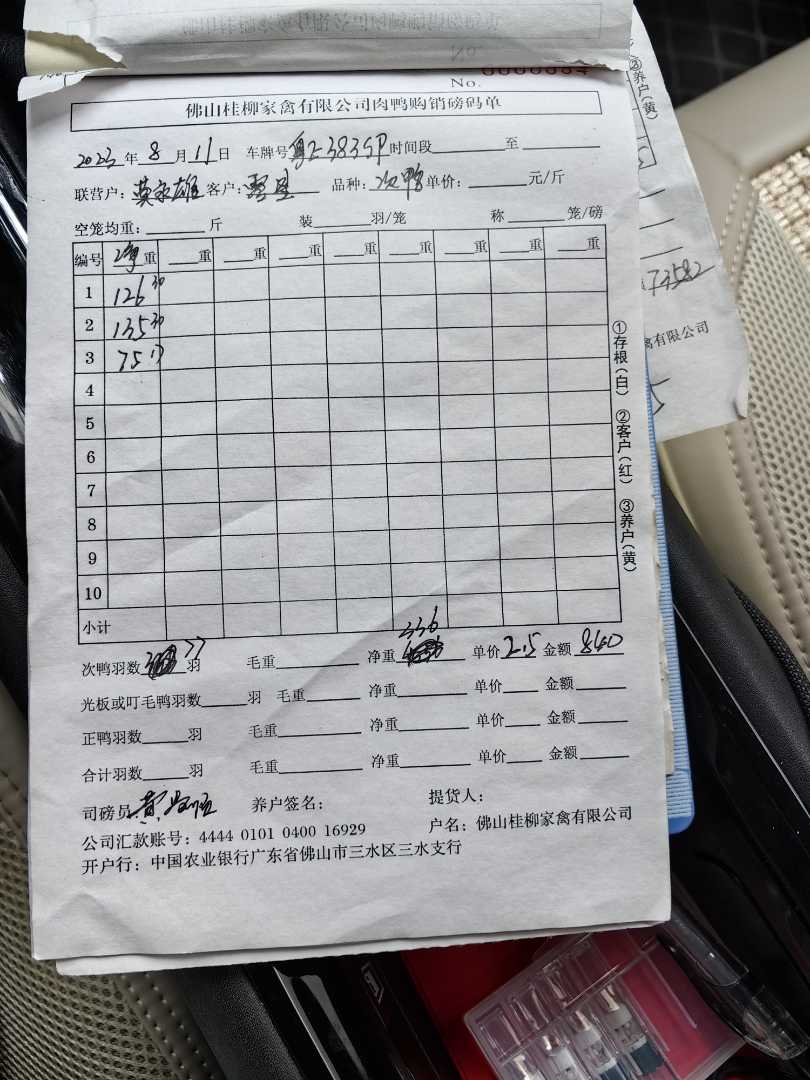 No.
佛山桂柳家禽有限公司肉鸭购销磅码单
2023年8月11日 车牌号粤E383SP时间段 至
联营户: 莫永雄 客户: 品种: 次鸭 单价: 元/斤
空笼均重: 斤 装 羽/笼 称 笼/磅
编号 净重 重 重 重 重 重 重 重 重
1 126 30
2 135 30
3 75 17
4
5
6
7
8
9
10
小计
次鸭羽数 77 羽 毛重 净重 336 单价 2.5 金额 840
光板或叮毛鸭羽数 羽 毛重 净重 单价 金额
正鸭羽数 羽 毛重 净重 单价 金额
合计羽数 羽 毛重 净重 单价 金额
司磅员 黄 养户签名: 提货人:
公司汇款账号: 4444 0101 0400 16929 户名: 佛山桂柳家禽有限公司
开户行: 中国农业银行广东省佛山市三水区三水支行
①存根(白) ②客户(红) ③养户(黄)
③养户(黄)
73582
禽有限公司